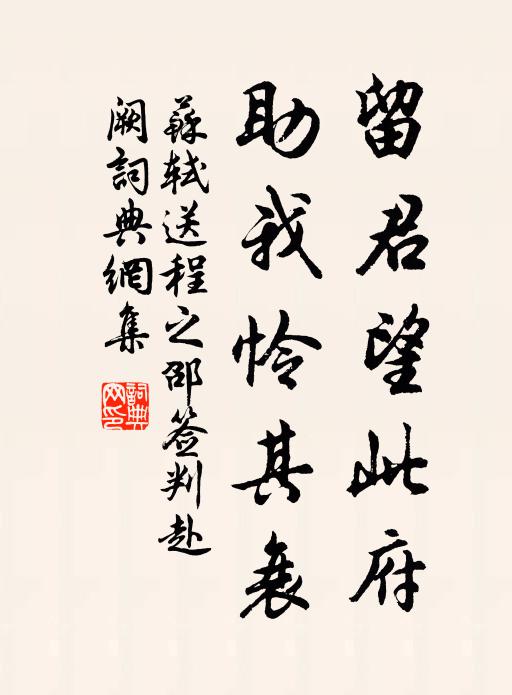 留君望此府
助我怜其衰
蘇軾送程之邵签判赴
阙詞典網集
詞典網印